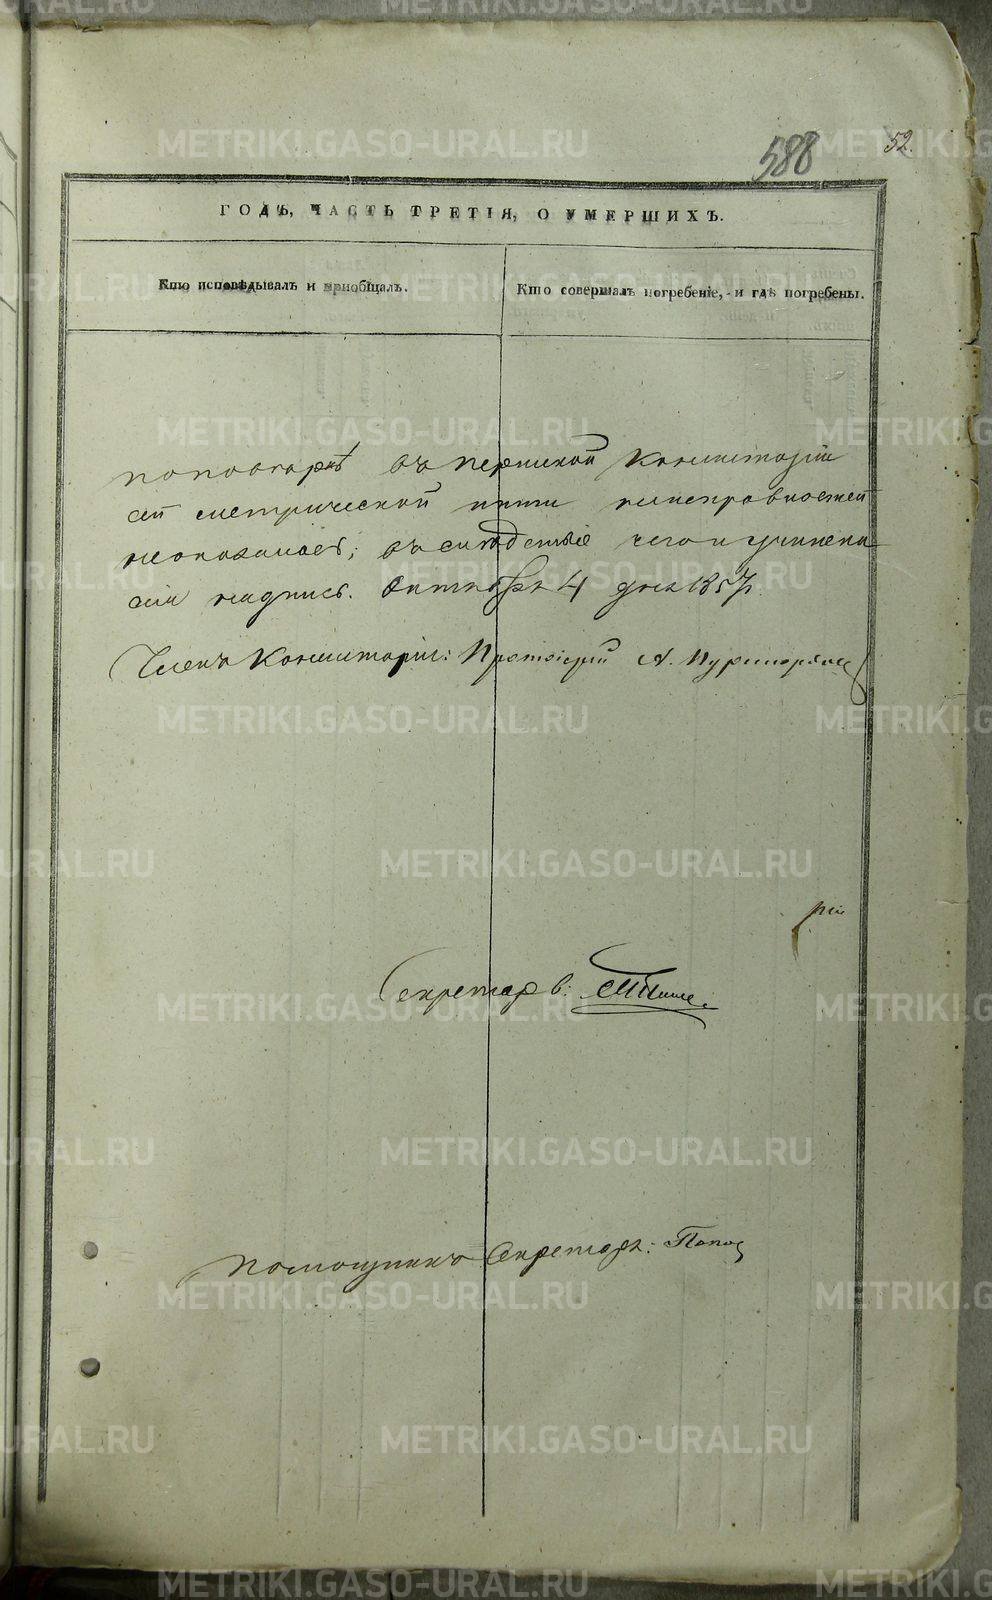 588 52.
ГОДЪ, ЧАСТЬ ТРЕТІЯ, О УМЕРШИХЪ.
Кто исповѣдывалъ и приобщалъ.
Кто совершалъ погребеніе, и гдѣ погребены.
по повѣркѣ въ Пермской Консисторіи
сей метрической книги неисправностей
неоказалось; въ слѣдствіе чего и учинена
сія надпись. Октября 4 дня 1857
Членъ Консисторіи: Протоіерей А.
рій
Секретарь:
Помощникъ Секретаря: Попов
METRIKI.GASO-URAL.RU